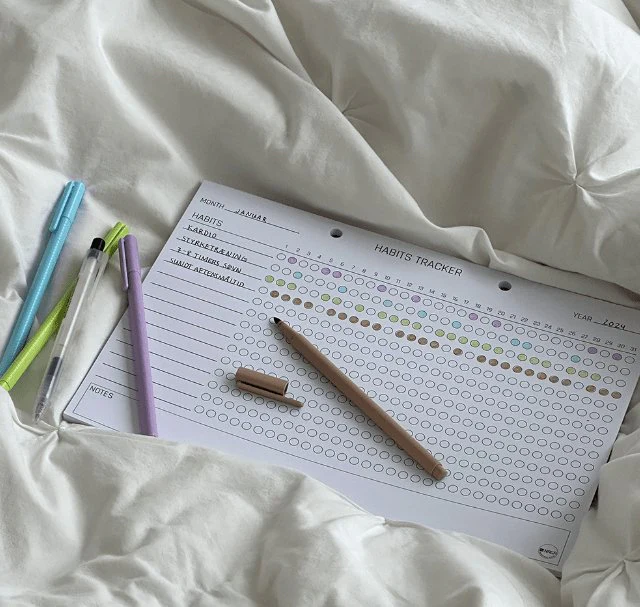 MONTH JANUAR
HABITS TRACKER
YEAR 2024
HABITS
1 2 3 4 5 6 7 8 9 10 11 12 13 14 15 16 17 18 19 20 21 22 23 24 25 26 27 28 29 30 31
KARDIO
STYRKETRÆNING
7-8 TIMERS SØVN
SUNDT AFTENSMÅLTID
NOTES